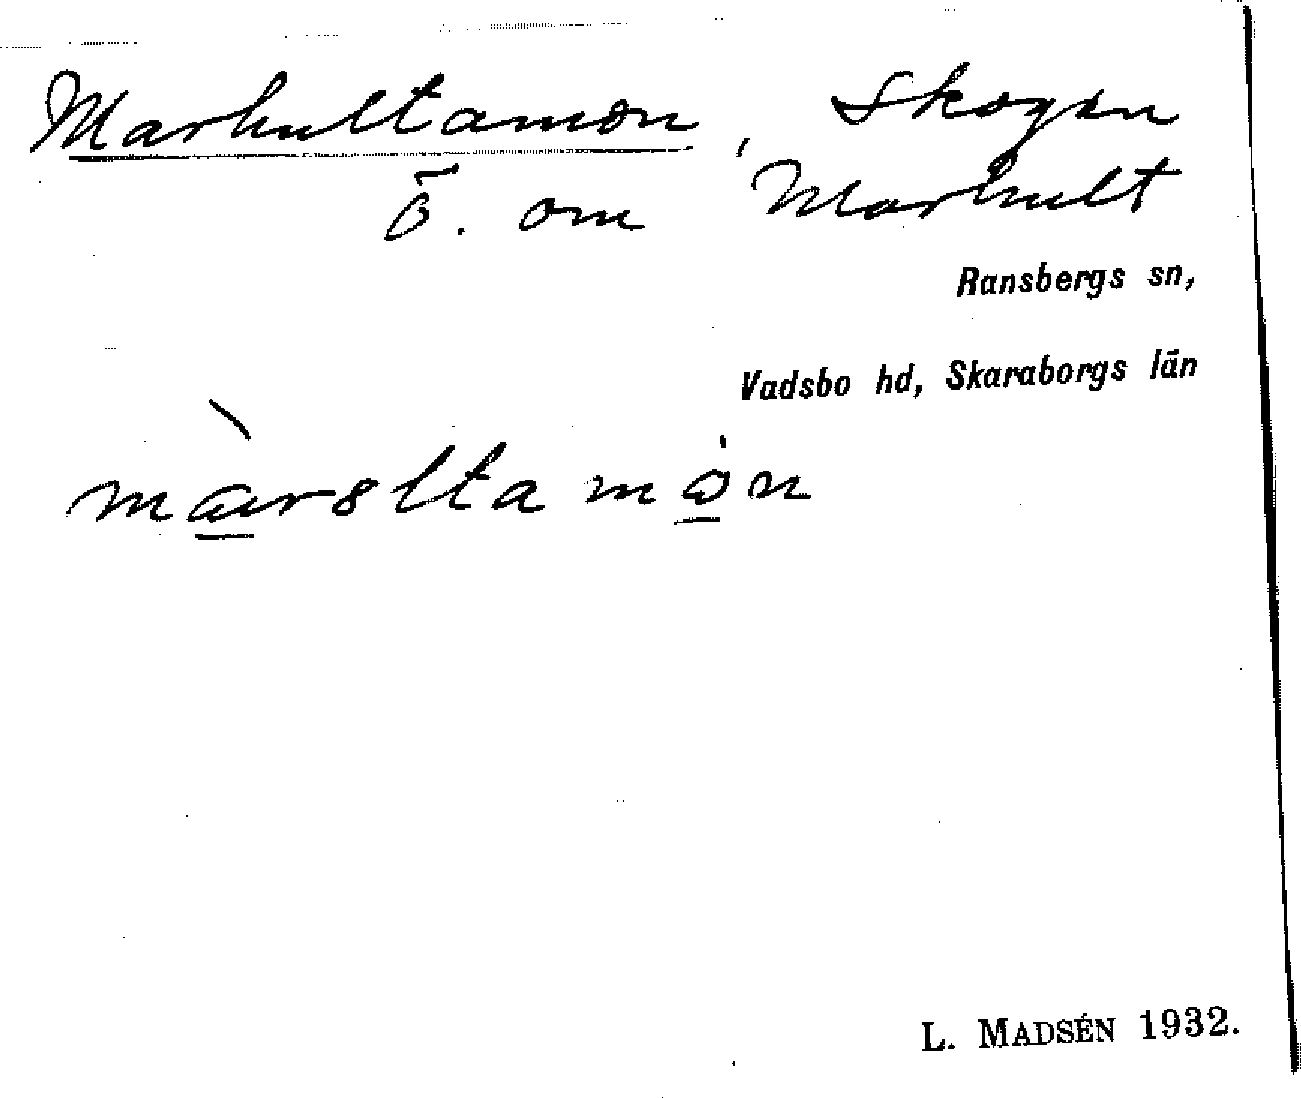 Markultamon, Skogen
Ö. om Markult
Ransbergs sn,
Vadsbo hd, Skaraborgs län
L. MADSÉN 1932.